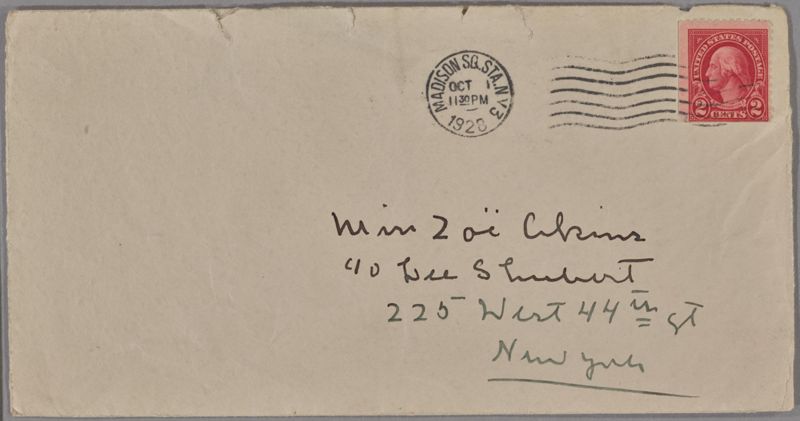 MADISON SQ. STA. N.Y. 3
OCT 1
11 30 PM
1928
UNITED STATES POSTAGE
2 CENTS 2
Miss Zoë Akins
c/o Lee Shubert
225 West 44th St
New York